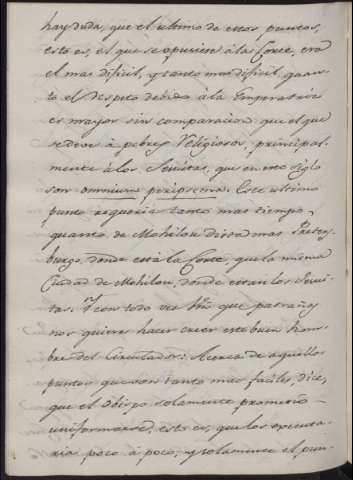 hay duda, que el ultimo de estos puntos,
esto es, el que se opusiese à la Corte, era
el mas dificil, y tanto mas dificil, quan-
to el despeto debido à la Emperatriz
es mayor sin comparacion que el que
se deve à pobres Religiosos, principal-
mente à los Jesuitas, que en este siglo
son omnium peripsema. Este ultimo
punto requeria tanto mas tiempo,
quanto de Mohilou dista mas Peters-
burgo, donde està la Corte, que la misma
Ciudad de Mohilou, donde estan los Jesui-
tas. Y con todo ves que patrañas
nos quiere hacer creer este buen hom-
bre del Circulador: Acerca de aquellos
puntos que son tanto mas faciles, dice,
que el Obispo solamente prometió
uniformarse, esto es, que los executa-
ria poco à poco, y solamente el pun-